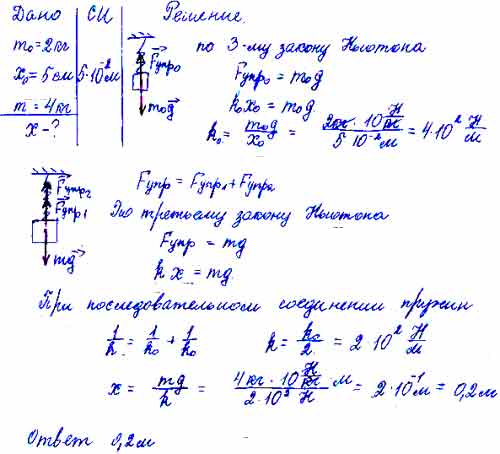 Дано СИ Решение.
m₀ = 2 кг
x₀ = 5 см 5·10⁻² м
m = 4 кг
x - ?
Fупр₀
m₀g
по 3-му закону Ньютона
Fупр₀ = m₀g
k₀x₀ = m₀g
k₀ = m₀g / x₀ = 2кг · 10 Н/кг / 5·10⁻² м = 4·10² Н/м
Fупр₂
Fупр₁
mg
Fупр = Fупр₁ + Fупр₂
По третьему закону Ньютона
Fупр = mg
k x = mg
При последовательном соединении пружин
1/k = 1/k₀ + 1/k₀ k = k₀/2 = 2·10² Н/м
x = mg / k = 4 кг · 10 Н/кг · м / 2·10² Н = 2·10⁻¹ м = 0,2 м
Ответ 0,2 м